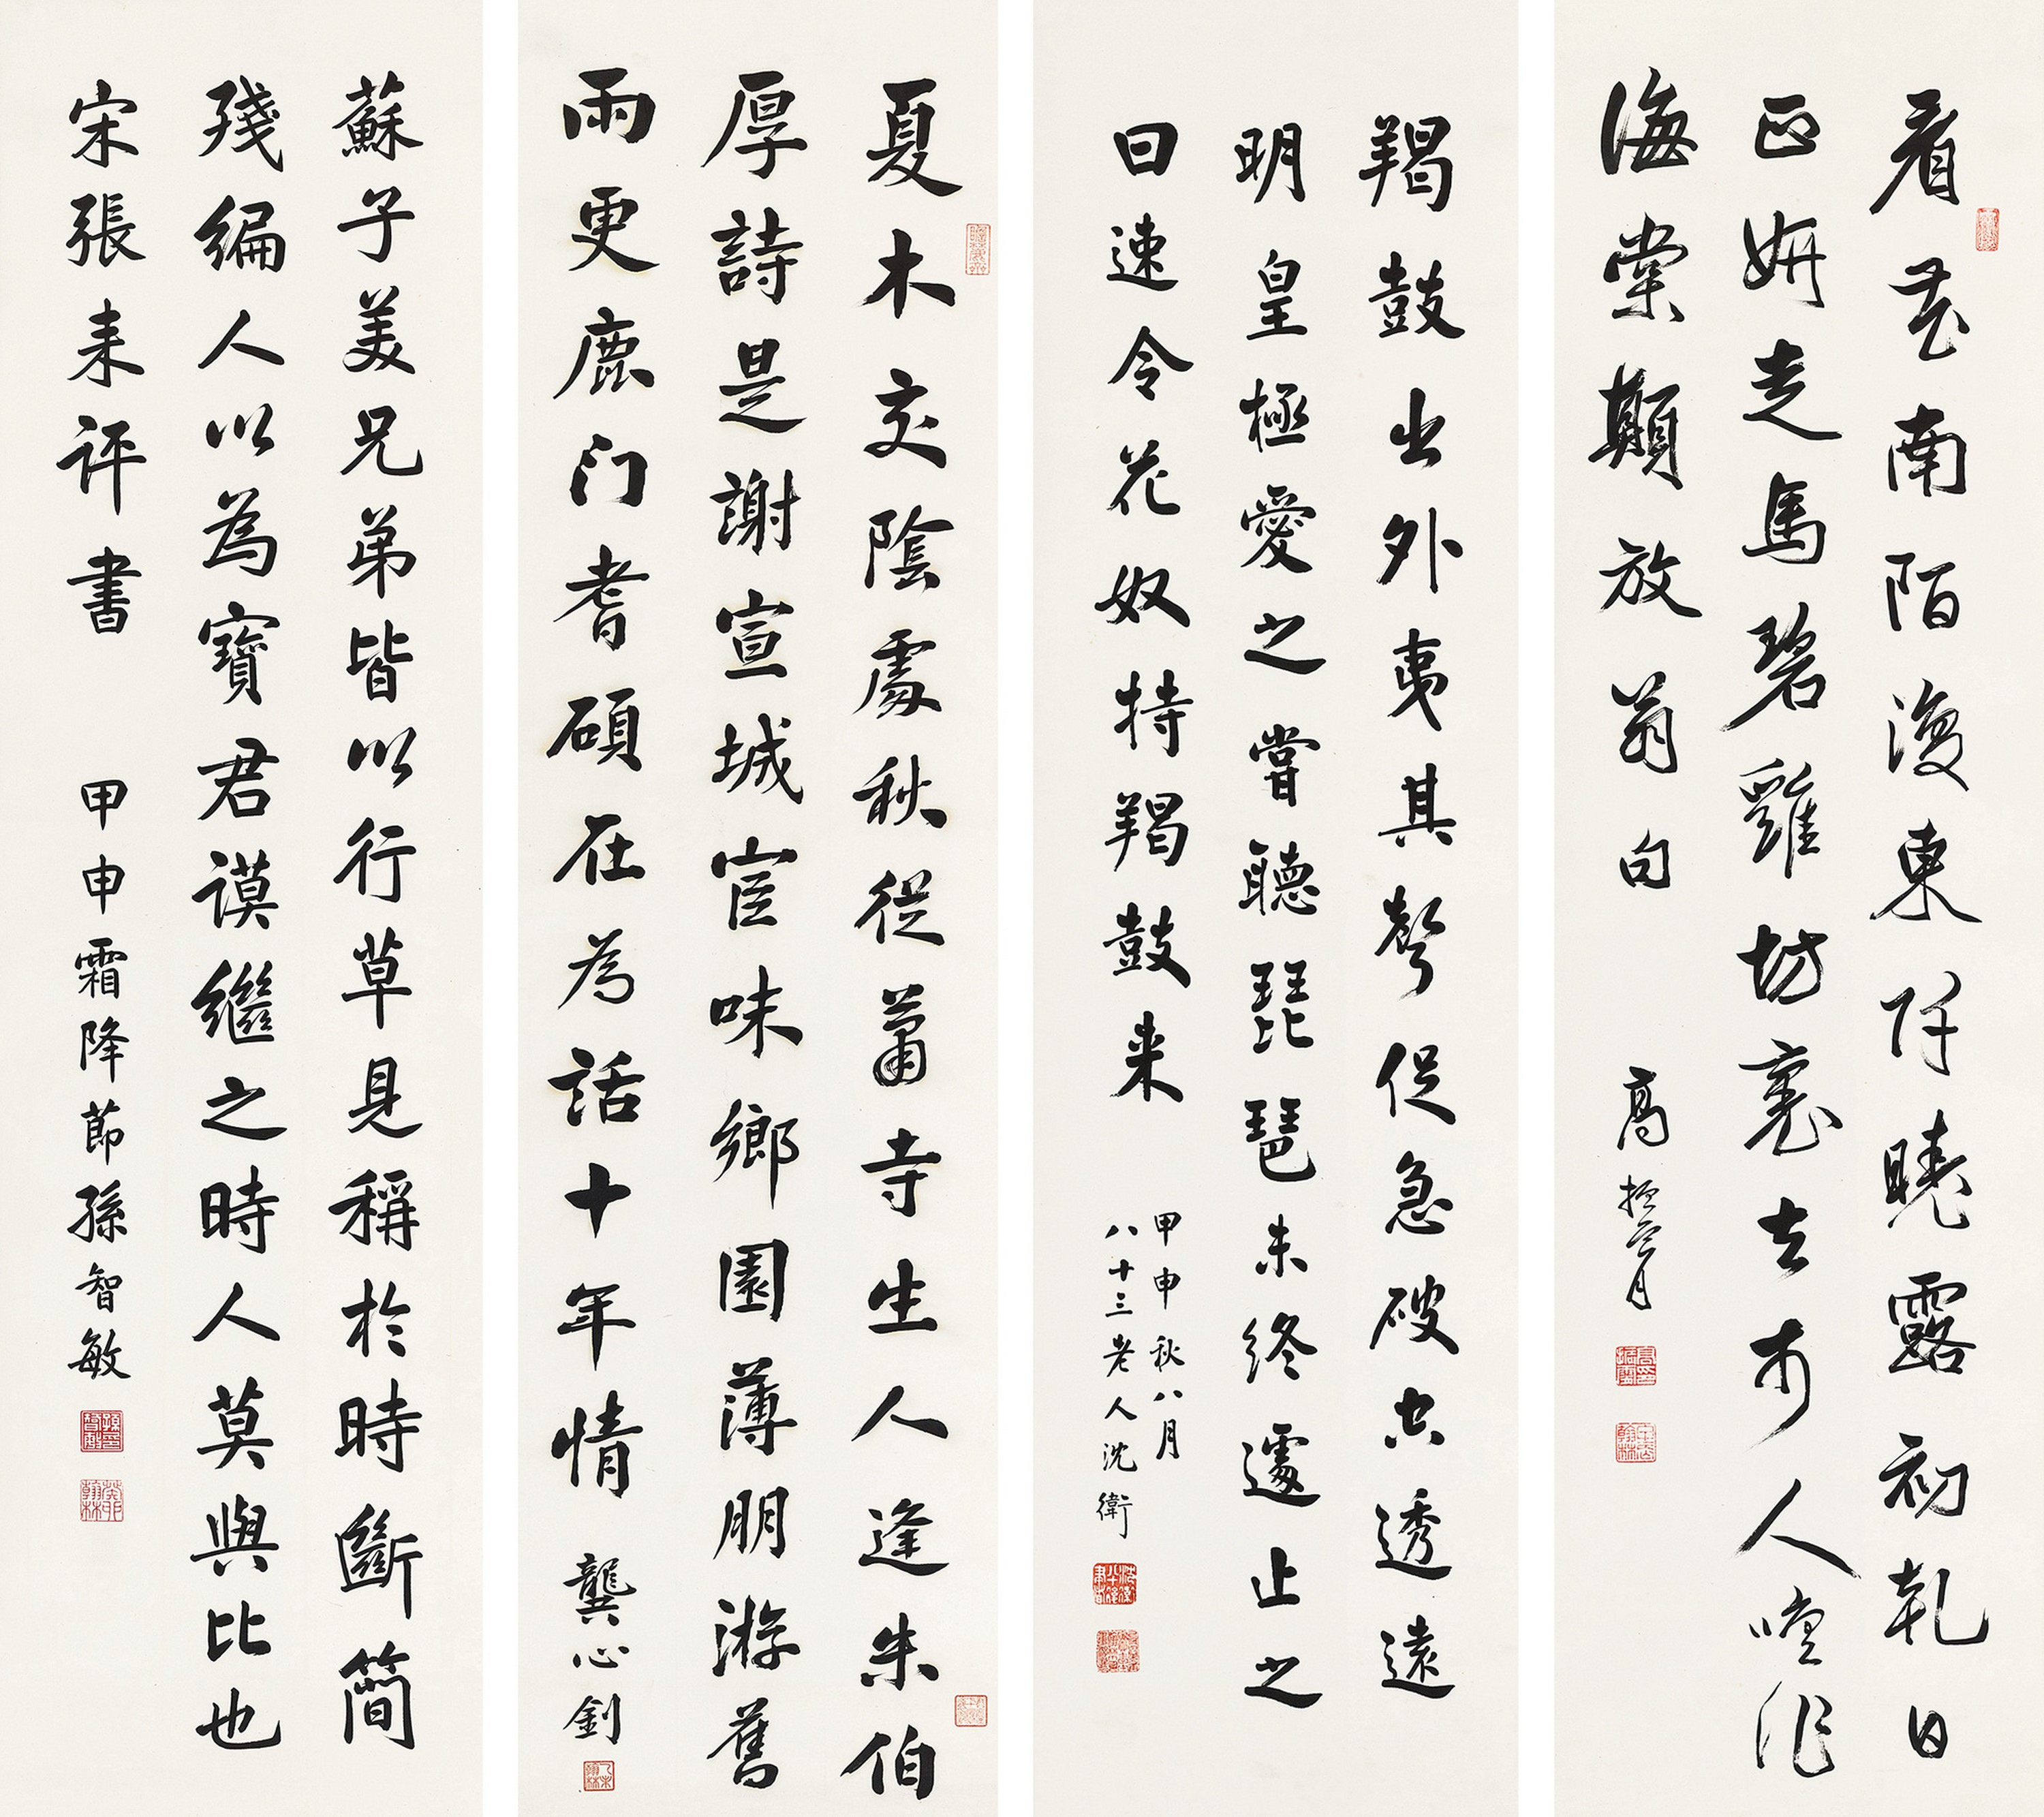 看花南陌復東阡曉露初乾日
正妍走馬碧雞坊裏去市人喚作
海棠顛放翁句
高振霄
羯鼓出外夷其聲促急破空透遠
明皇極愛之嘗聽琵琶未終遽止之
曰速令花奴持羯鼓来
甲申秋八月
八十三老人沈衛
夏木交陰處秋從蕭寺生人逢朱伯
厚詩是謝宣城宦味鄉園薄朋游舊
雨更鹿门耆碩在為話十年情
龔心釗
蘇子美兄弟皆以行草見稱於時斷簡
殘編人以為寶君謨繼之時人莫與比也
宋張耒评書
甲申霜降節孫智敏